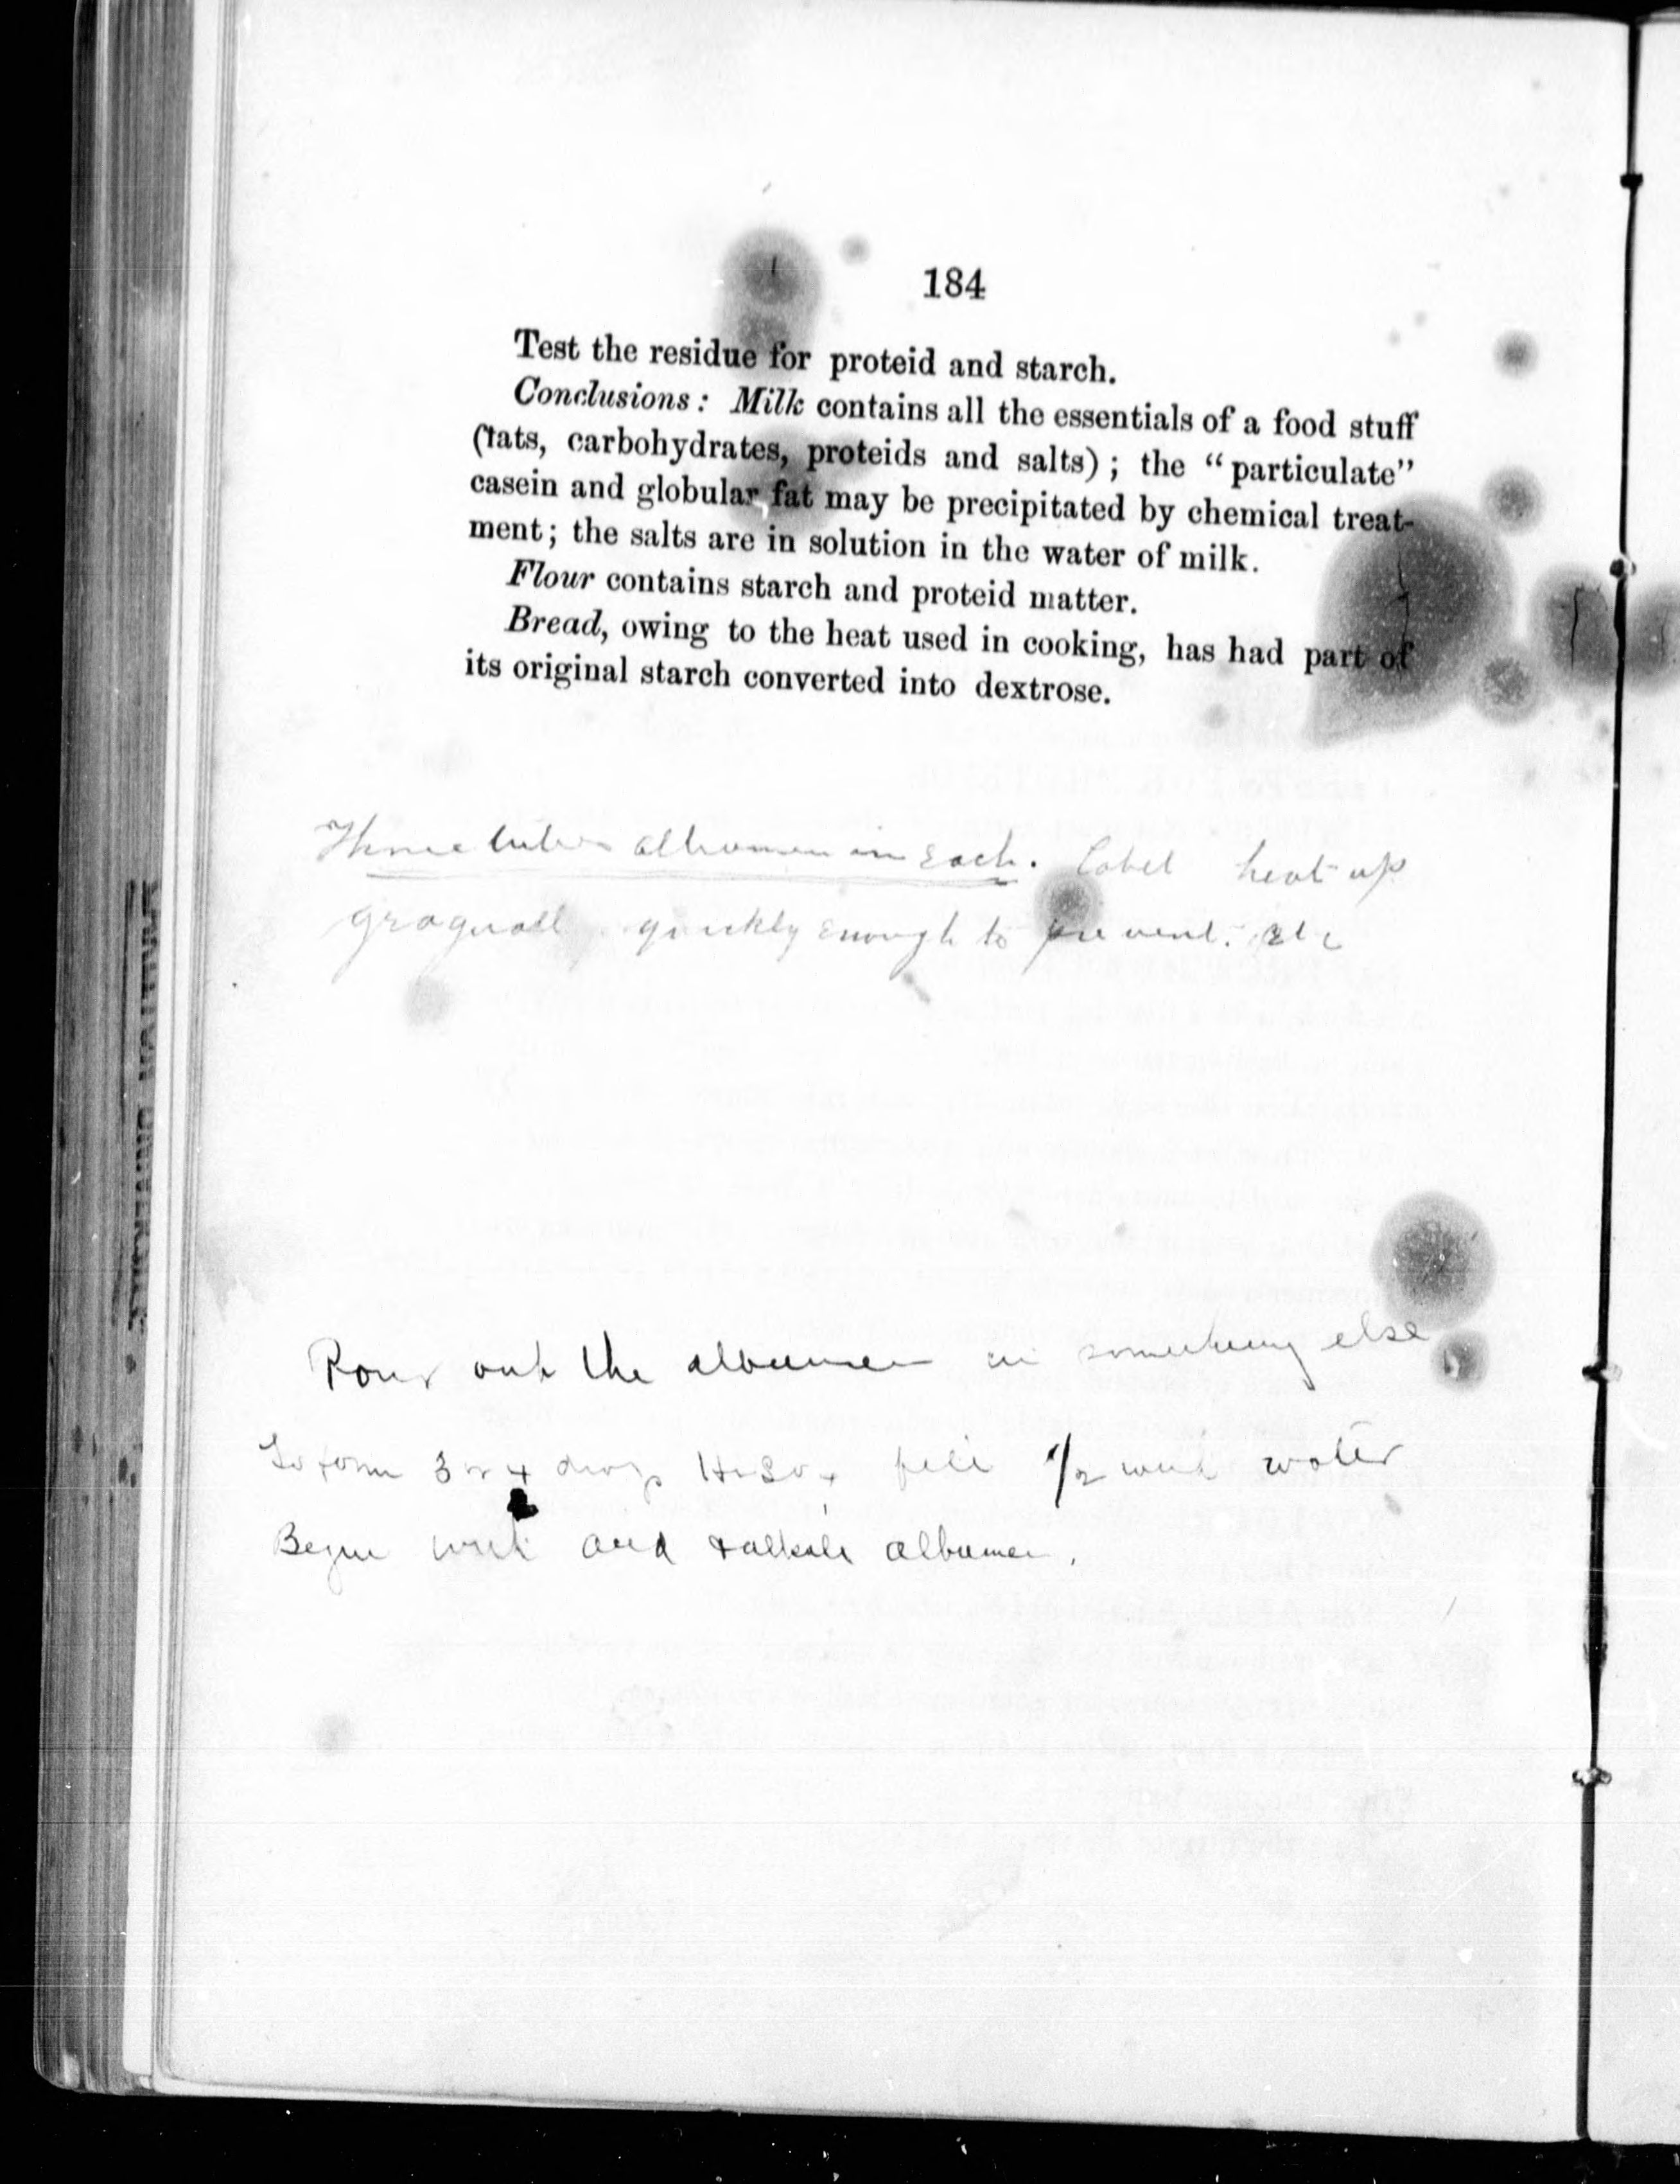 184
Test the residue for proteid and starch.
Conclusions: Milk contains all the essentials of a food stuff
(fats, carbohydrates, proteids and salts); the “particulate”
casein and globular fat may be precipitated by chemical treat-
ment; the salts are in solution in the water of milk.
Flour contains starch and proteid matter.
Bread, owing to the heat used in cooking, has had part of
its original starch converted into dextrose.
Three tubes albumen in each. Label heat up
quickly enough to prevent. etc
Pour out the albumen in something else
3 or 4 drops H2SO4 fill 1/2 with water
Begin with acid + alkali albumen.